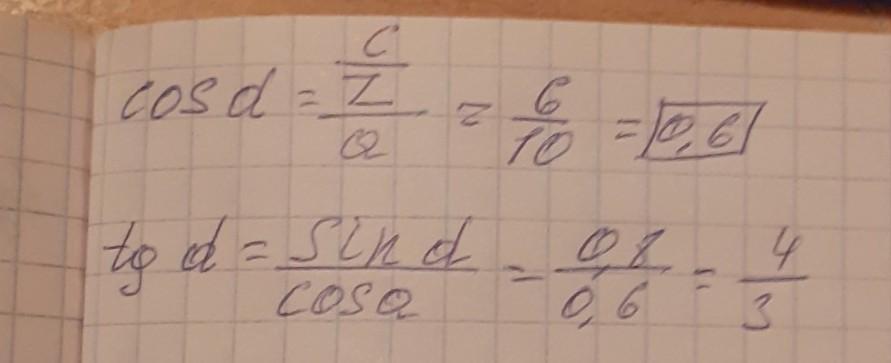 cos α = (c/2)/a = 6/10 = 0,6
tg α = sin α / cos α = 0,8/0,6 = 4/3